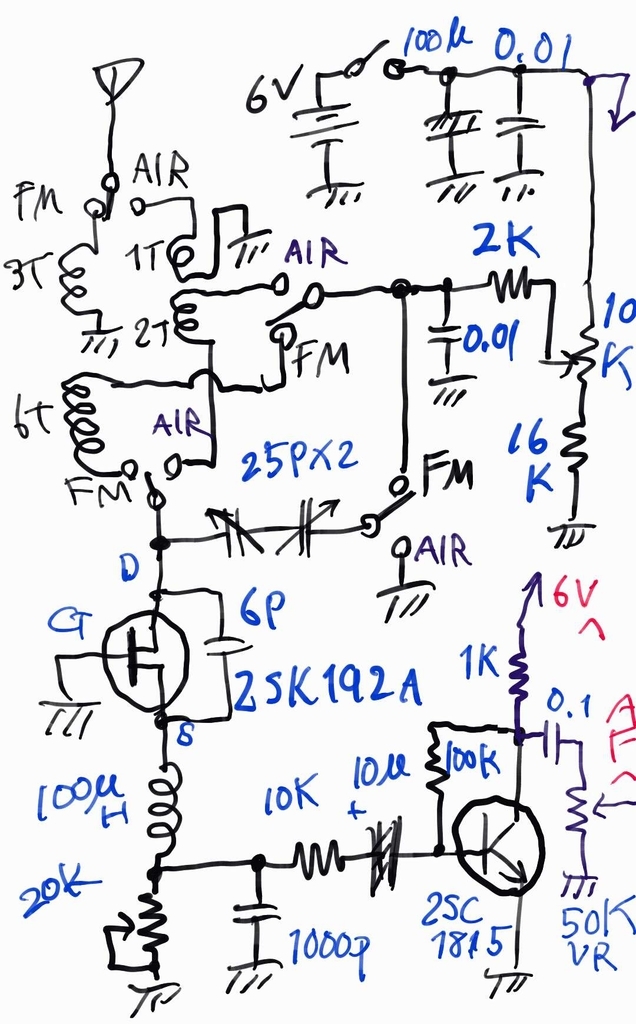 100μ 0.01
6V
AIR
FM
3T
1T
AIR
2K
2T
0.01
10
K
FM
6T
AIR
25P×2
16
K
FM
FM
AIR
D
6P
6V
G
2SK192A
1K
S
0.1
100μ
H
10K
10μ
+
100K
20K
1000p
2SC
1815
50K
VR